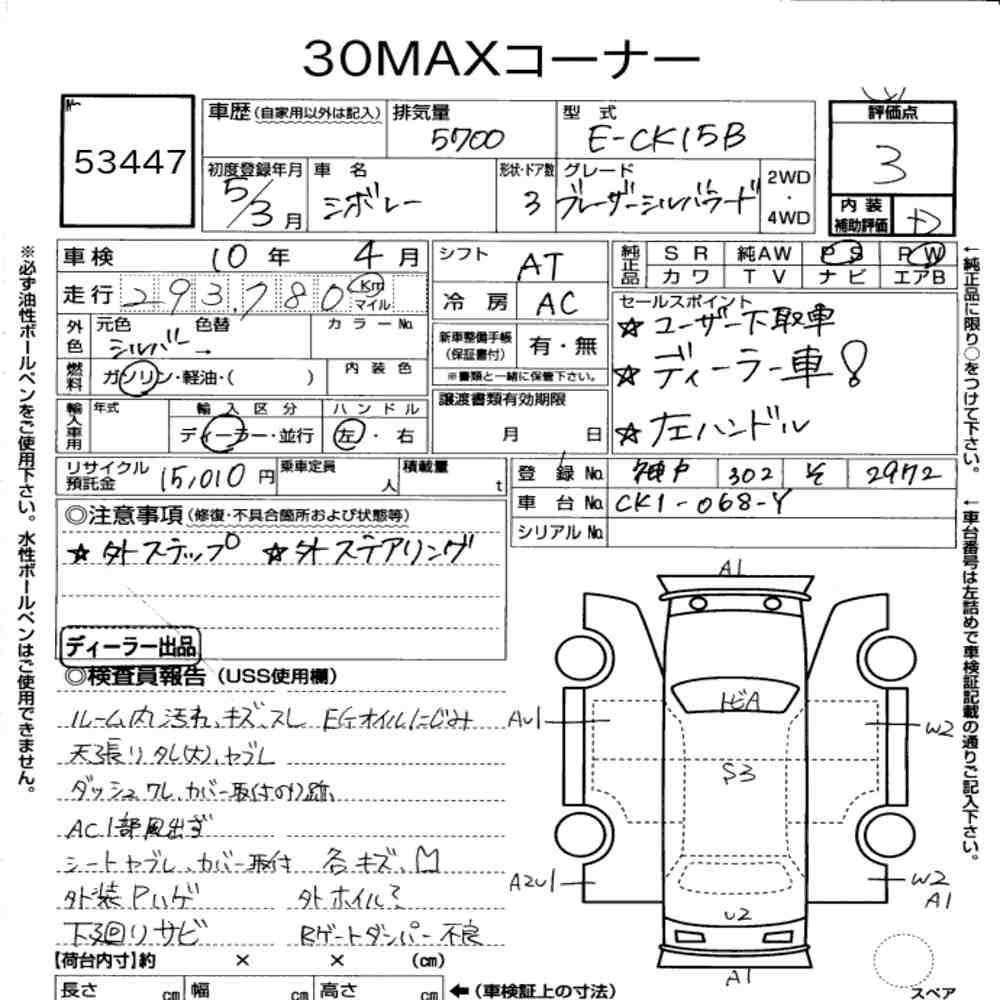 30MAXコーナー
No.
53447
車歴(自家用以外は記入) 排気量 5700 型式 E-CK15B
初度登録年月 5/3月 車名 シボレー 形状・ドア数 3 グレード ブレーザーシルバラード 2WD・4WD
評価点 3
内装補助評価 D
車検 10年 4月
走行 293,780 Km マイル
外色 元色 シルバー 色替 → カラーNo.
燃料 ガソリン・軽油・( ) 内装色
輸入車用 年式 輸入区分 ディーラー・並行 ハンドル 左・右
リサイクル預託金 15,010円 乗車定員 人 積載量 t
シフト AT
冷房 AC
新車整備手帳(保証書付) 有・無
※書類と一緒に保管下さい。
譲渡書類有効期限
月 日
純正品 SR 純AW PS PW
カワ TV ナビ エアB
セールスポイント
☆ユーザー下取車
☆ディーラー車!
☆左ハンドル
登録No. 神戸 302 そ 2972
車台No. CK1-068-Y
シリアルNo.
◎注意事項(修復・不具合箇所および状態等)
☆外ステップ ☆外ステアリング
ディーラー出品
◎検査員報告(USS使用欄)
ルーム内汚れ、キズ、スレ EGオイルにじみ
天張りタレ(大)、ヤブレ
ダッシュワレ、カバー取付のり跡
AC1部風出ず
シートヤブレ、カバー取付 各キズ、凹
外装Pハゲ 外ホイルミ
下廻りサビ Rゲートダンパー不良
【荷台内寸】約 × × (cm)
長さ cm 幅 cm 高さ cm ←(車検証上の寸法)
A1
トビA
AU1
W2
S3
A2U1
W2
A1
U2
A1
スペア
※必ず油性ボールペンをご使用下さい。水性ボールペンはご使用できません。
←純正品に限り○をつけて下さい。
←車台番号は左詰めで車検証記載の通りご記入下さい。